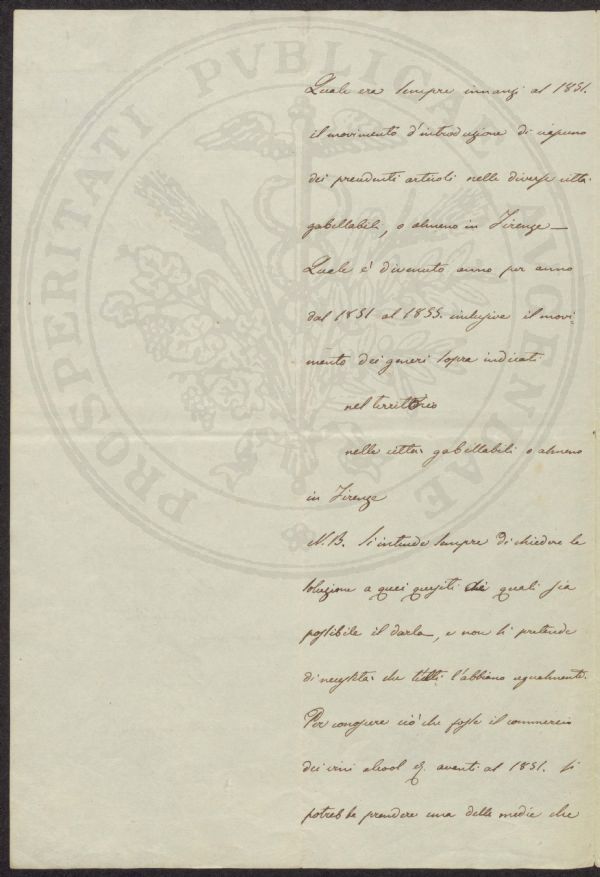 PROSPERITATI PVBLICAE AVGENDAE
Quale era sempre innanzi al 1851.
il movimento d'introduzione di ciascuno
dei prenduti articoli nelle diverse città
gabellabili, o almeno in Firenze —
Quale è divenuto anno per anno
dal 1851 al 1855. inclusive il movi-
mento dei generi sopra indicati
nel territorio
nelle città gabellabili o almeno
in Firenze
N.B. Si intende sempre di chiedere la
soluzione a quei quesiti dei quali sia
possibile il darla, e non si pretende
di necessità che tutti l'abbiano egualmente.
Per conoscere ciò che fosse il commercio
dei vini alcool &. avanti al 1851. si
potrebbe prendere una delle medie che